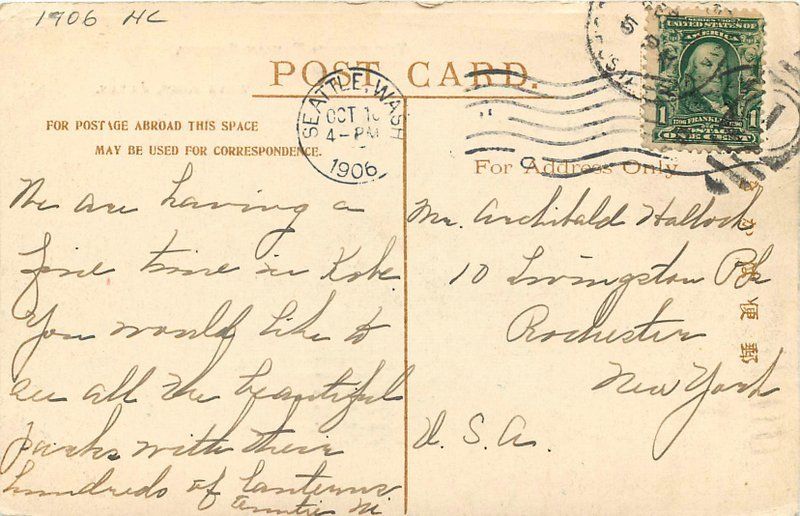 1906 HC
POST CARD.
FOR POSTAGE ABROAD THIS SPACE
MAY BE USED FOR CORRESPONDENCE.
SEATTLE, WASH
OCT
4-PM
1906
SERIES 1902
UNITED STATES OF
AMERICA
1 FRANKLIN 1
POSTAGE
ONE CENT
For Address Only
We are having a
fine time in Kobe
You would like to
see all the beautiful
parks with their
hundreds of lanterns
Auntie M.
Mr. Archibald Hallock
10 Livingston Pk
Rochester
New York
U. S. A.
郵便はかき